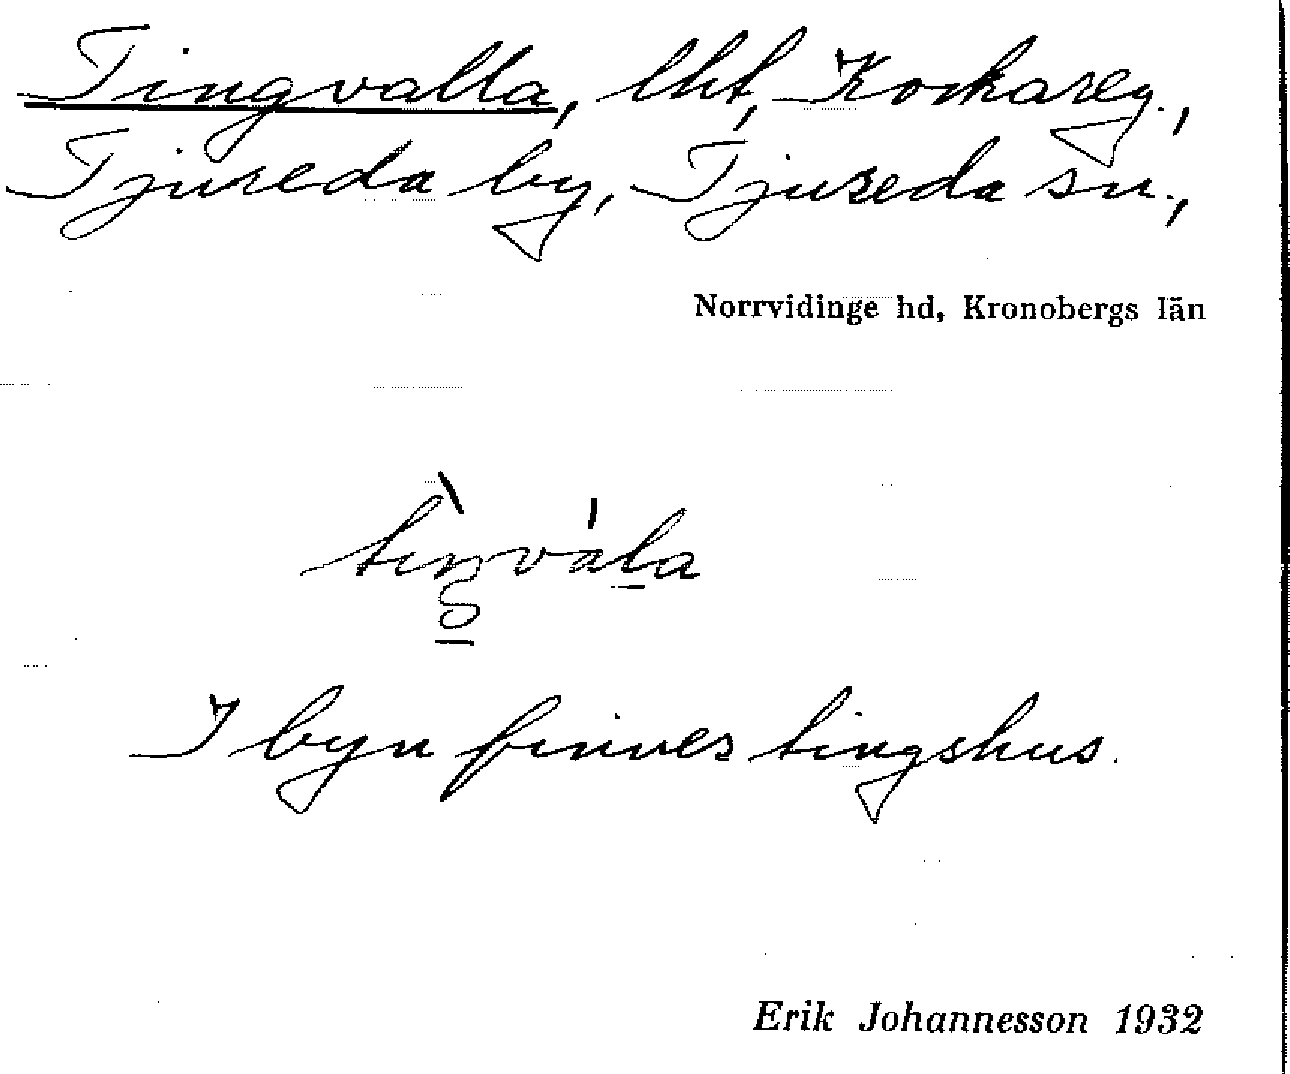 Tingvalla, lht, Kockareg.,
Tjureda by, Tjureda sn.,
Norrvidinge hd, Kronobergs län
I byn finnes tingshus.
Erik Johannesson 1932